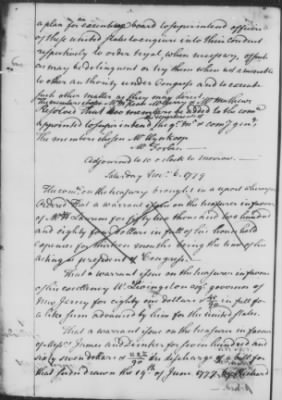 a plan for an executive board to superintend officers
of these united states to enquire into their conduct
respectively to order tryal, when necessary of such
as may be delinquent or try them when not amenable
to other authority under Congress and to execute
such other matter as they may direct
The members chosen Mr
Resolved That two members be added to the comee
appointed to superintend the qr. Mr. & comy genl.
The members chosen Mr Hynkoop
Mr Forbes
Adjourned to 10 o Clock to morrow.
Saturday Novr. 6. 1779
The comee. on the treasury brought in a report whereupon
Ordered That a warrant issue on the treasurer in favour
of Mr H Laurens for fifty two thousand and two hundred
and eighty four dollars in full of his household
expences for thirteen months being the time of his
acting as president of Congress.
That a warrant issue on the treasurer in favour
of his excellency W Livingston esqr. governor of
New Jersey for eighty one dollars in full for
a like sum advanced by him for the united states.
That a warrant issue on the treasurer in favour
of Messrs and for hundred and
sixty seven dollars & in discharge of a bill for
that drawn the 19th of June 1777